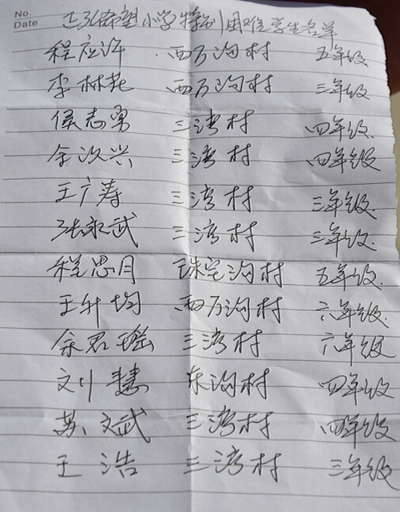 No.
Date
正弘希望小学特别困难学生名单
程应许 西万沟村 五年级
李林苑 西万沟村 三年级
侯志勇 三湾村 四年级
余汶兴 三湾村 四年级
王广寿 三湾村 三年级
张永武 三湾村 三年级
程思月 珠宝沟村 五年级
王升均 西万沟村 六年级
余君瑶 三湾村 六年级
刘慧 东沟村 四年级
苏文武 三湾村 四年级
王浩 三湾村 三年级